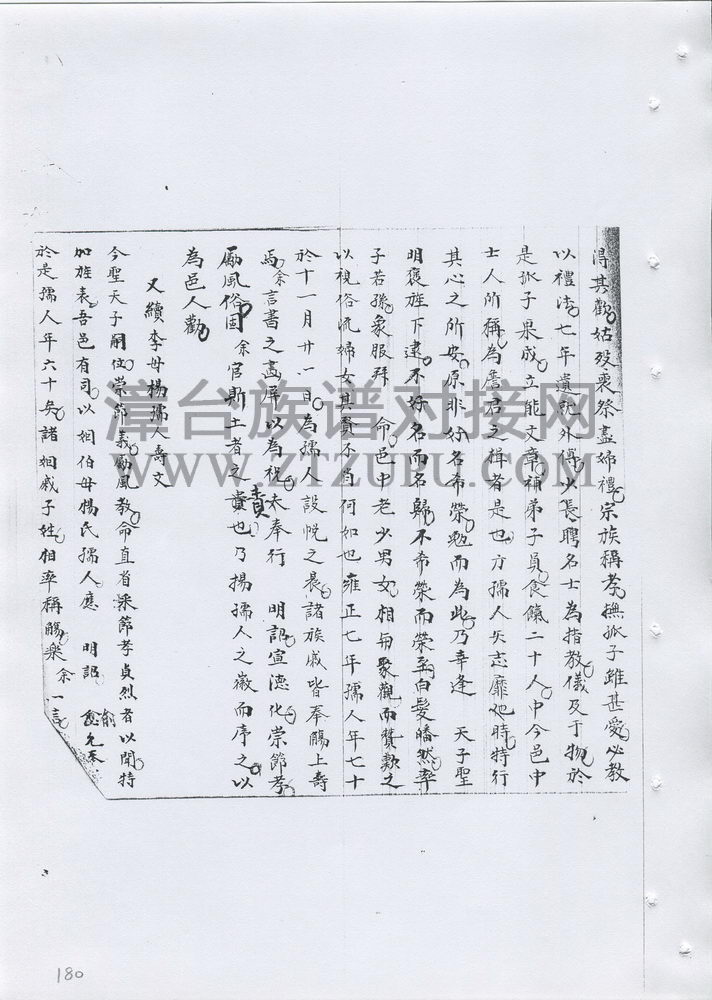 得其歡姑歿喪祭盡婦禮宗族稱孝撫孤子雖甚愛必教
以禮法七年遣就外傅少長聘名士為指教儀及于物於
是孤子果成立能文章補弟子員食餼二十人中今邑中
士人所稱為詹君之揖者是也方孺人矢志靡他時特行
其心之所安原非好名希榮勉而為此乃幸逢 天子聖
明褒旌下逮不好名而名歸不希榮而榮至白髮皤然率
子若孫象服拜 命邑中老少男女相與聚觀而贊歎之
以視俗流婦女其賢不肖何如也雍正七年孺人年七十
於十一月廿一日為孺人設帨之晨諸族戚皆奉觴上壽
焉余言書之畫屏以為祝夫奉行 明詔宣德化崇節孝
勵風俗固余官斯土者之責也乃揚孺人之徽而序之以
責
為邑人勸
又續李母楊孺人壽文
今聖天子嗣位崇節義勵風教命直省采節孝貞烈者以聞特
加旌表吾邑有司以姻伯母楊氏孺人應 明詔 俞允奉
於是孺人年六十矣諸姻戚子姓相率稱觴樂余一言
漳台族谱对接网
WWW.ZTZUPU.COM
180